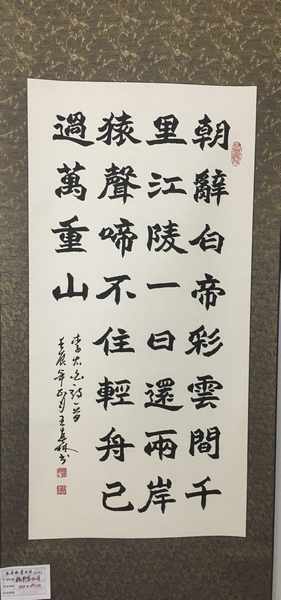 朝辭白帝彩雲間千
里江陵一日還兩岸
猿聲啼不住輕舟已
過萬重山
李太白詩一首
壬辰年